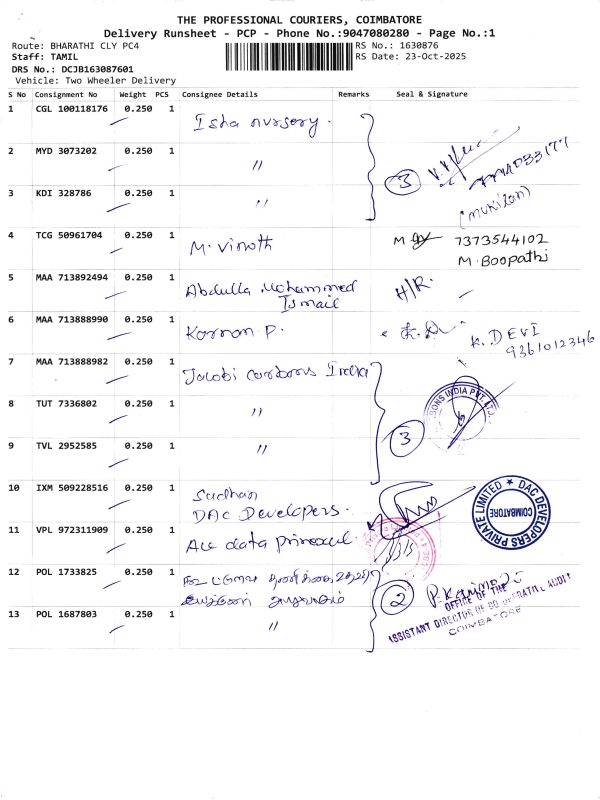 THE PROFESSIONAL COURIERS, COIMBATORE
Delivery Runsheet - PCP - Phone No.:9047080280 - Page No.:1
Route: BHARATHI CLY PC4
RS No.: 1630876
Staff: TAMIL
RS Date: 23-Oct-2025
DRS No.: DCJB163087601
Vehicle: Two Wheeler Delivery
S No Consignment No Weight PCS Consignee Details Remarks Seal & Signature
1 CGL 100118176 0.250 1 Isha nursery.
2 MYD 3073202 0.250 1 "
3 KDI 328786 0.250 1 "
3
4 TCG 50961704 0.250 1 M. Vinoth M 7373544102
M. Boopathi
5 MAA 713892494 0.250 1 Abdulla Mohammed H/R.
Ismail
6 MAA 713888990 0.250 1 Kannan P. K. DEVI
9361012346
7 MAA 713888982 0.250 1 Jacobi carbons India
8 TUT 7336802 0.250 1 "
BONS INDIA PVT. LTD.
9 TVL 2952585 0.250 1 "
3
10 IXM 509228516 0.250 1 Sudhan
DAC Developers.
DAC DEVELOPERS PRIVATE LIMITED
COIMBATORE
11 VPL 972311909 0.250 1 Ace data
12 POL 1733825 0.250 1
2
OFFICE OF THE
ASSISTANT DIRECTOR OF CO OPERATIVE AUDIT
COIMBATORE
13 POL 1687803 0.250 1 "